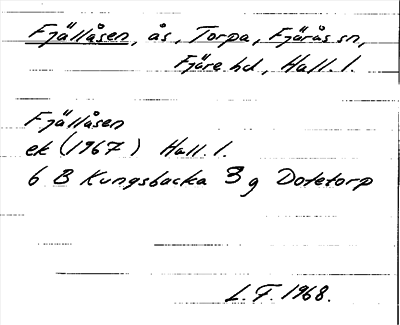 Fjällåsen, ås, Torpa, Fjärås sn,
Fjäre hd, Hall. l.
Fjällåsen
ek (1967) Hall. l.
6 B Kungsbacka 3 g Dotetorp
L. F. 1968.